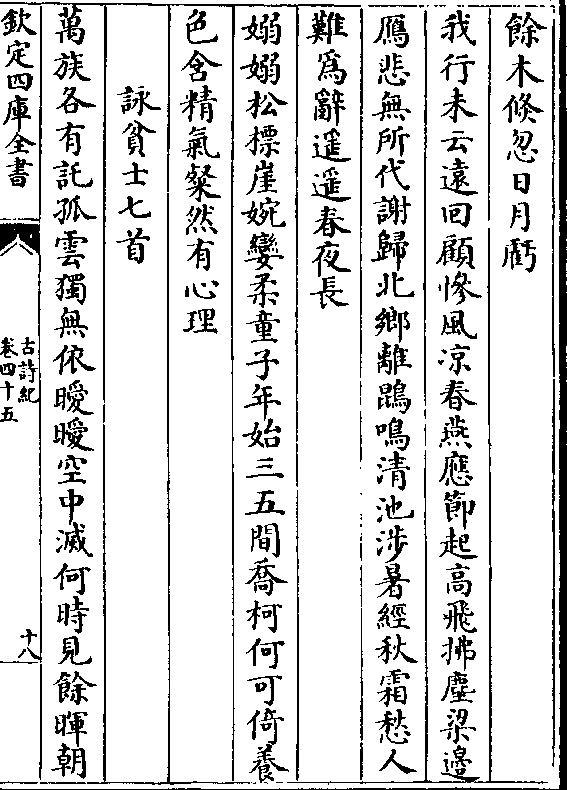 餘木倐忽日月虧
我行未云遠回顧慘風凉春燕應節起高飛拂塵梁邊
鴈悲無所代謝歸北鄉離鵾鳴清池涉暑經秋霜愁人
難為辭遥遥春夜長
嫋嫋松摽崖婉孌柔童子年始三五間喬柯何可倚養
色含精氣粲然有心理
詠貧士七首
萬族各有託孤雲獨無依曖曖空中滅何時見餘暉朝
欽定四庫全書
古詩紀
卷四十五
十八